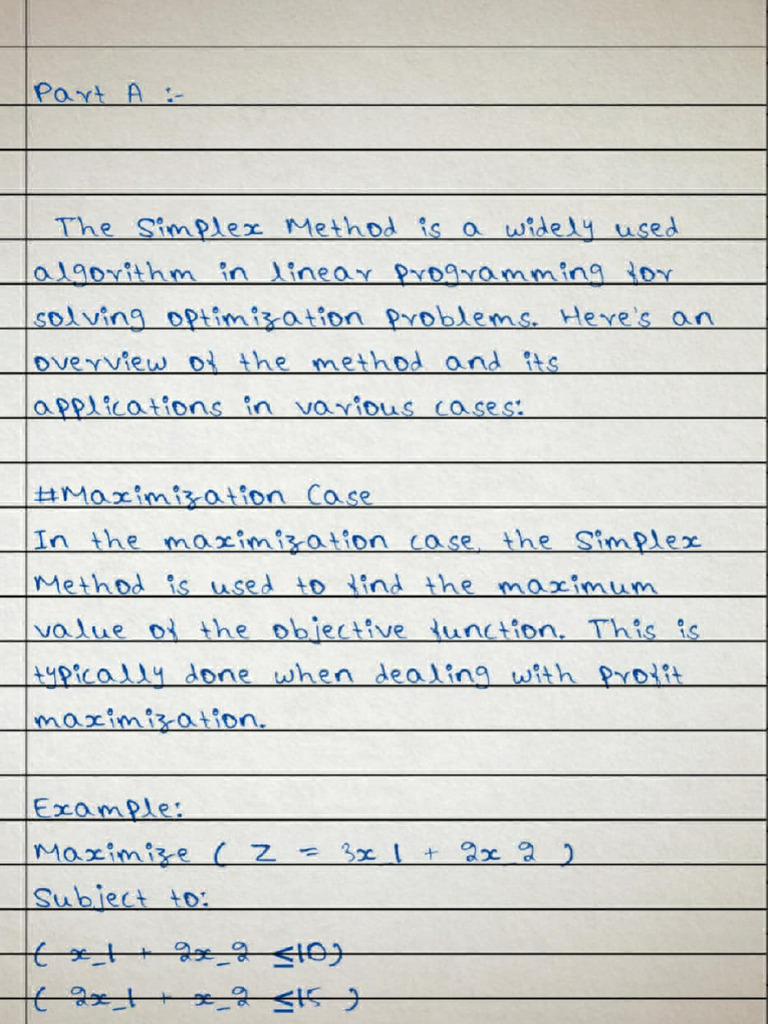 Part A :-
The Simplex Method is a widely used
algorithm in linear programming for
solving optimization problems. Here's an
overview of the method and its
applications in various cases:
#Maximization Case
In the maximization case, the Simplex
Method is used to find the maximum
value of the objective function. This is
typically done when dealing with profit
maximization.
Example:
Maximize ( Z = 3x_1 + 2x_2 )
Subject to:
( x_1 + 2x_2 ≤10)
( 2x_1 + x_2 ≤15 )